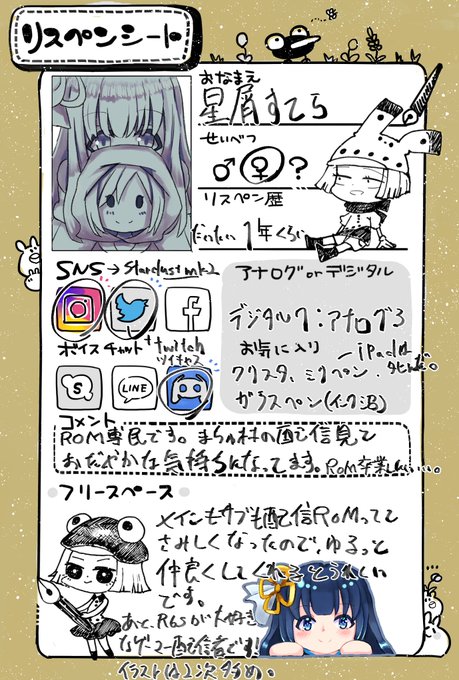 リスペンシート
おなまえ
星屑すてら
せいべつ
♂ ♀ ?
リスペン歴
だいたい1年くらい
SNS → Stardustmk2
アナログorデジタル
デジタル7:アナログ3
ボイスチャット + twitch
ツイキャス
お気に入り
クリスタ、ミリペン
iPadは
ガラスペン(インク沼)
S LINE
コメント
ROM専民です。まちゅ村の配信見て
おだやかな気持ちになってます。ROM卒業したい…。
フリースペース
メインもサブも配信ROMってて
さみしくなったので、ゆるっと
仲良くしてくれるとうれしい
です。
あと、R6Sが大好き
なゲーマー配信者です!
イラストは2次多め。